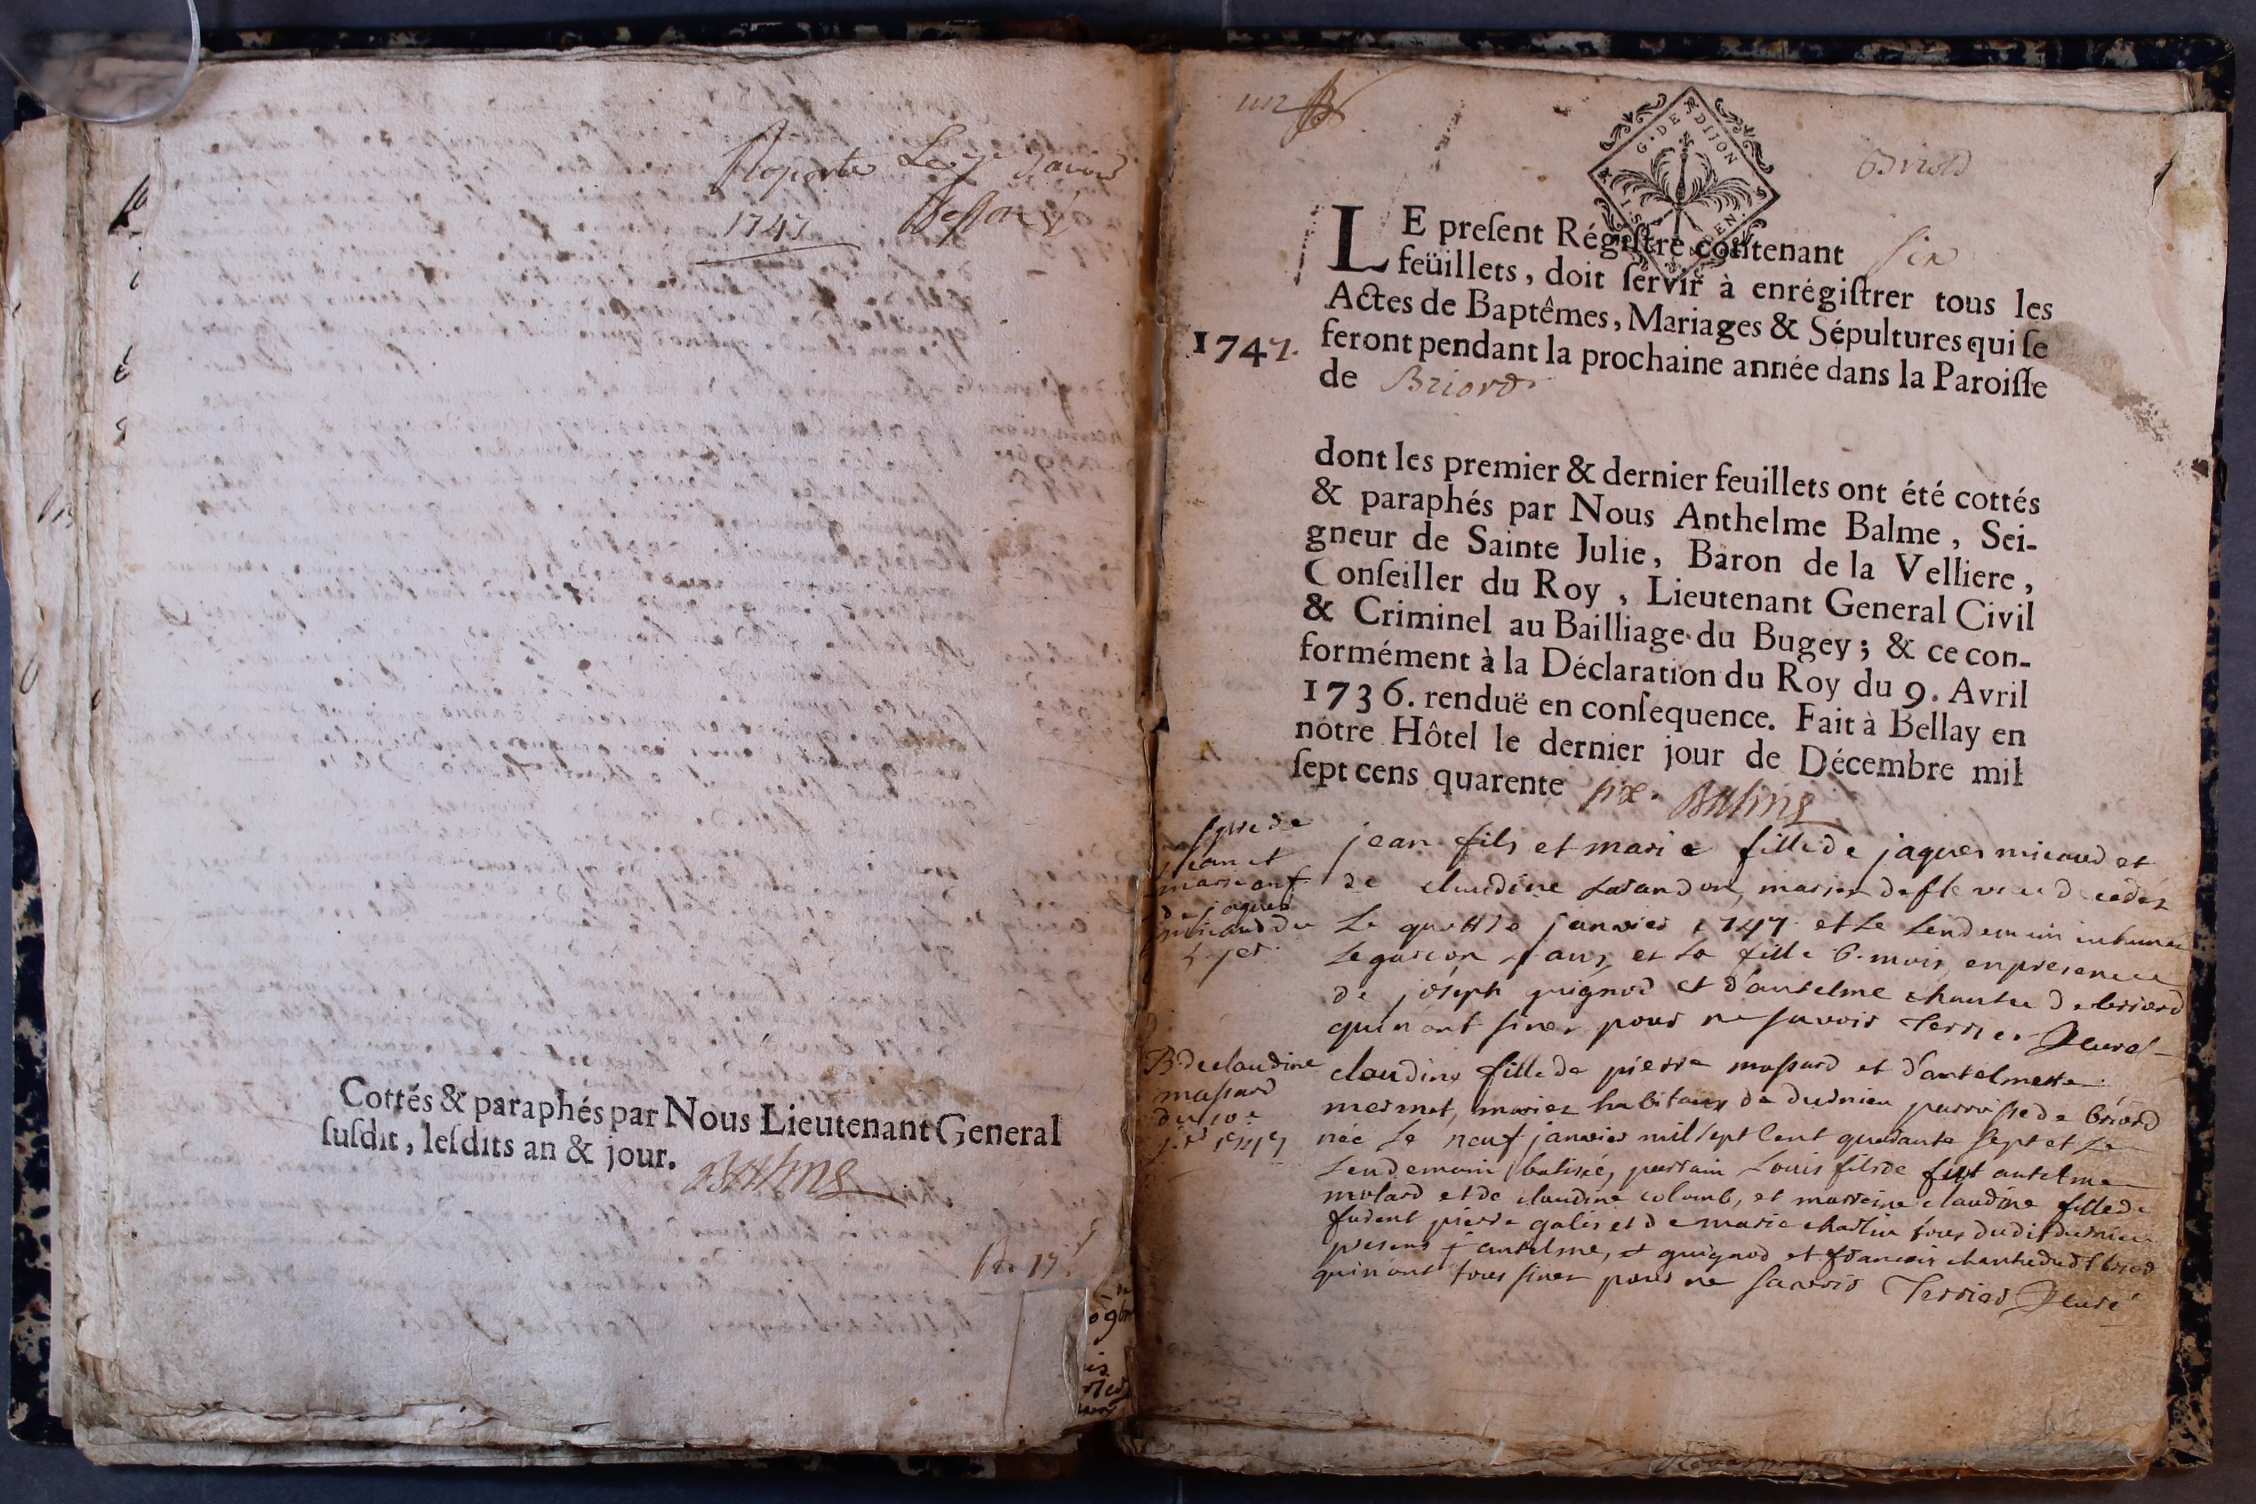 Raporté Le 7e Janvier
1747
Cottés & paraphés par Nous Lieutenant General
ſuſdit, leſdits an & jour.
Balme
un
G. DE DIJON
Briord
LE preſent Régiſtre contenant six
feüillets, doit ſervir à enrégiſtrer tous les
Actes de Baptêmes, Mariages & Sépultures qui ſe
1747. feront pendant la prochaine année dans la Paroiſſe
de Briord
dont les premier & dernier feuillets ont été cottés
& paraphés par Nous Anthelme Balme, Sei-
gneur de Sainte Julie, Baron de la Velliere,
Conſeiller du Roy, Lieutenant General Civil
& Criminel au Bailliage du Bugey; & ce con-
formément à la Déclaration du Roy du 9. Avril
1736. renduë en conſequence. Fait à Bellay en
nôtre Hôtel le dernier jour de Décembre mil
ſept cens quarente six. Balme
jean et
marie enf.
de jaques
micaud du
jean fils et marie fille de jaques micaud et
de claudine marier decedez
Le quattre janvier 1747 et Le Lendemain inhumez
Le garcon ans et La fille 6. mois en presence
de joseph guignod et d'antelme chantre de briord
qui n'ont siner pour ne savoir Terrier Curé
B. de claudine
massard
du 10e
claudine fille de pierre massard et d'antelmette
mermet, mariez habitans de dudnieu parroisse de briord
née Le neuf janvier mil sept Cent quarante sept et Le
Lendemain batisée, parrain Louis fils de fut antelme
molard et de claudine colomb, et marreine claudine fille de
pierre galis et de marie charlin tous dudit
presens antelme, guignod et francois chantre
qui n'ont tous siner pour ne savoir Terrier Curé